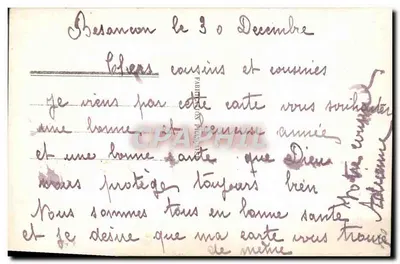 Besancon le 30 Decembre
Chers cousins et cousines
Je viens par cette carte vous souhaiter
une bonne et année
et une bonne sante que Dieu
vous protège toujours bien
Nous sommes tous en bonne sante
et je desire que ma carte vous trouve
de même
Votre cousine
CPARAMA